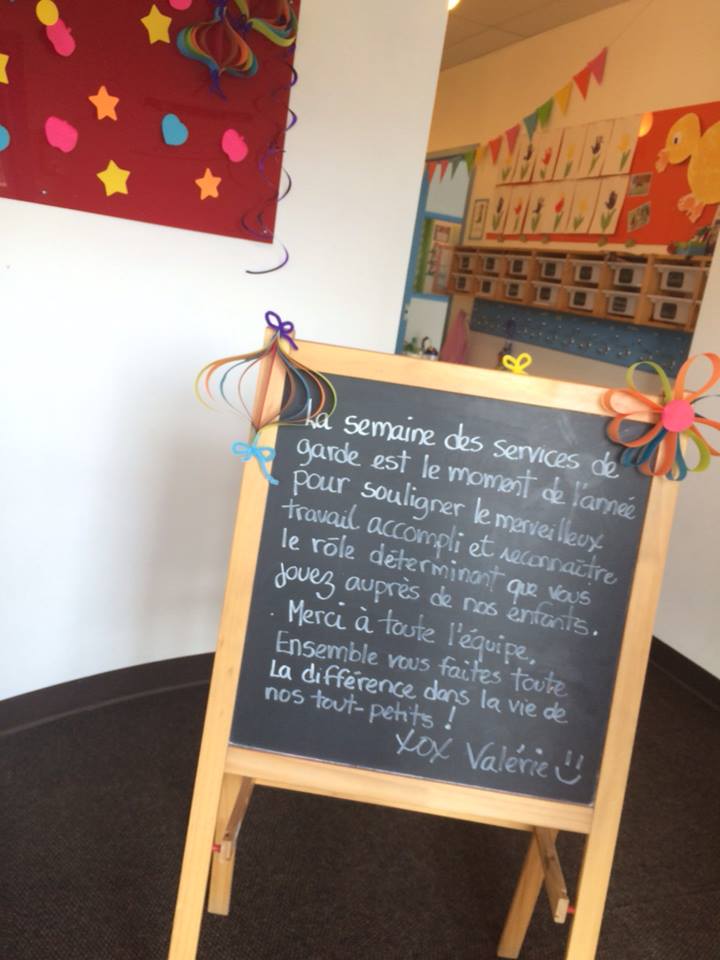 La semaine des services de
garde est le moment de l'année
pour souligner le merveilleux
travail accompli et reconnaître
le rôle déterminant que vous
jouez auprès de nos enfants.
Merci à toute l'équipe.
Ensemble vous faites toute
La différence dans la vie de
nos tout-petits !
XOX Valérie